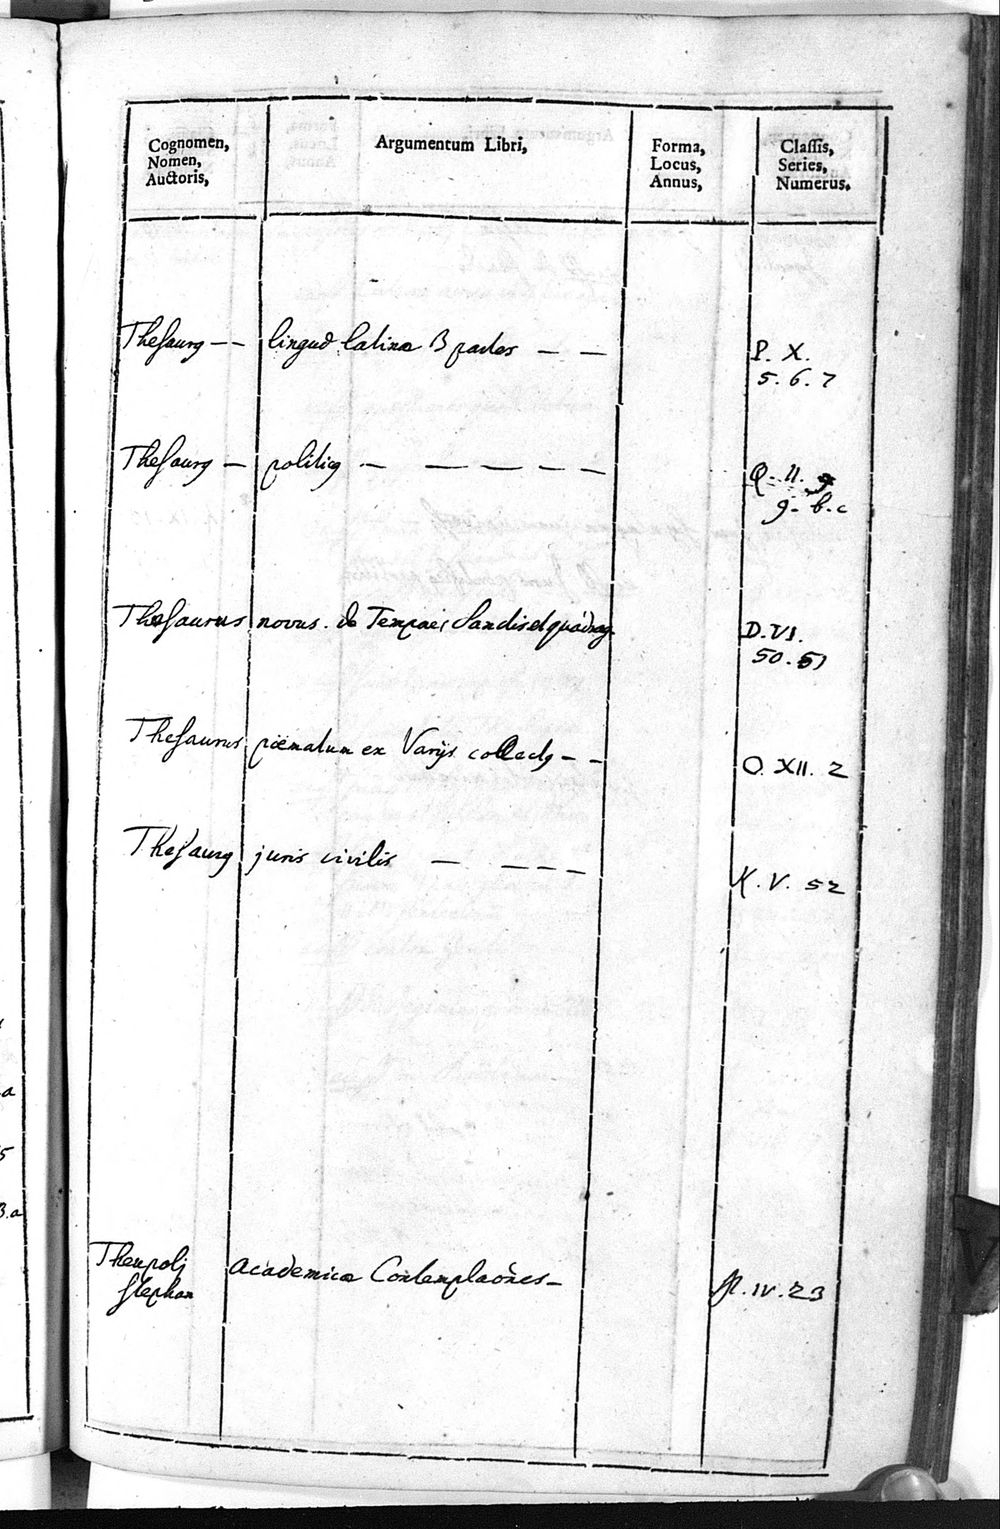 Cognomen,
Nomen,
Auctoris,
Argumentum Libri,
Forma,
Locus,
Annus,
Classis,
Series,
Numerus.
Thesaurq — — linguæ latinæ 3 partes — —
P. X.
5. 6. 7
Thesaurq — politicq — — — — —
Q. II. 9
9. b. c
Thesaurus novus. de Tempore, Sanctis et quadrag.
D. VI.
50. 51
Thesaurus poëmatum ex Varijs collectq — —
O. XII. 2
Thesaurq juris civilis — — — —
K. V. 52
Theupolj Academicæ Contemplaões —
Stephan
IV. 23
a
5
3.a